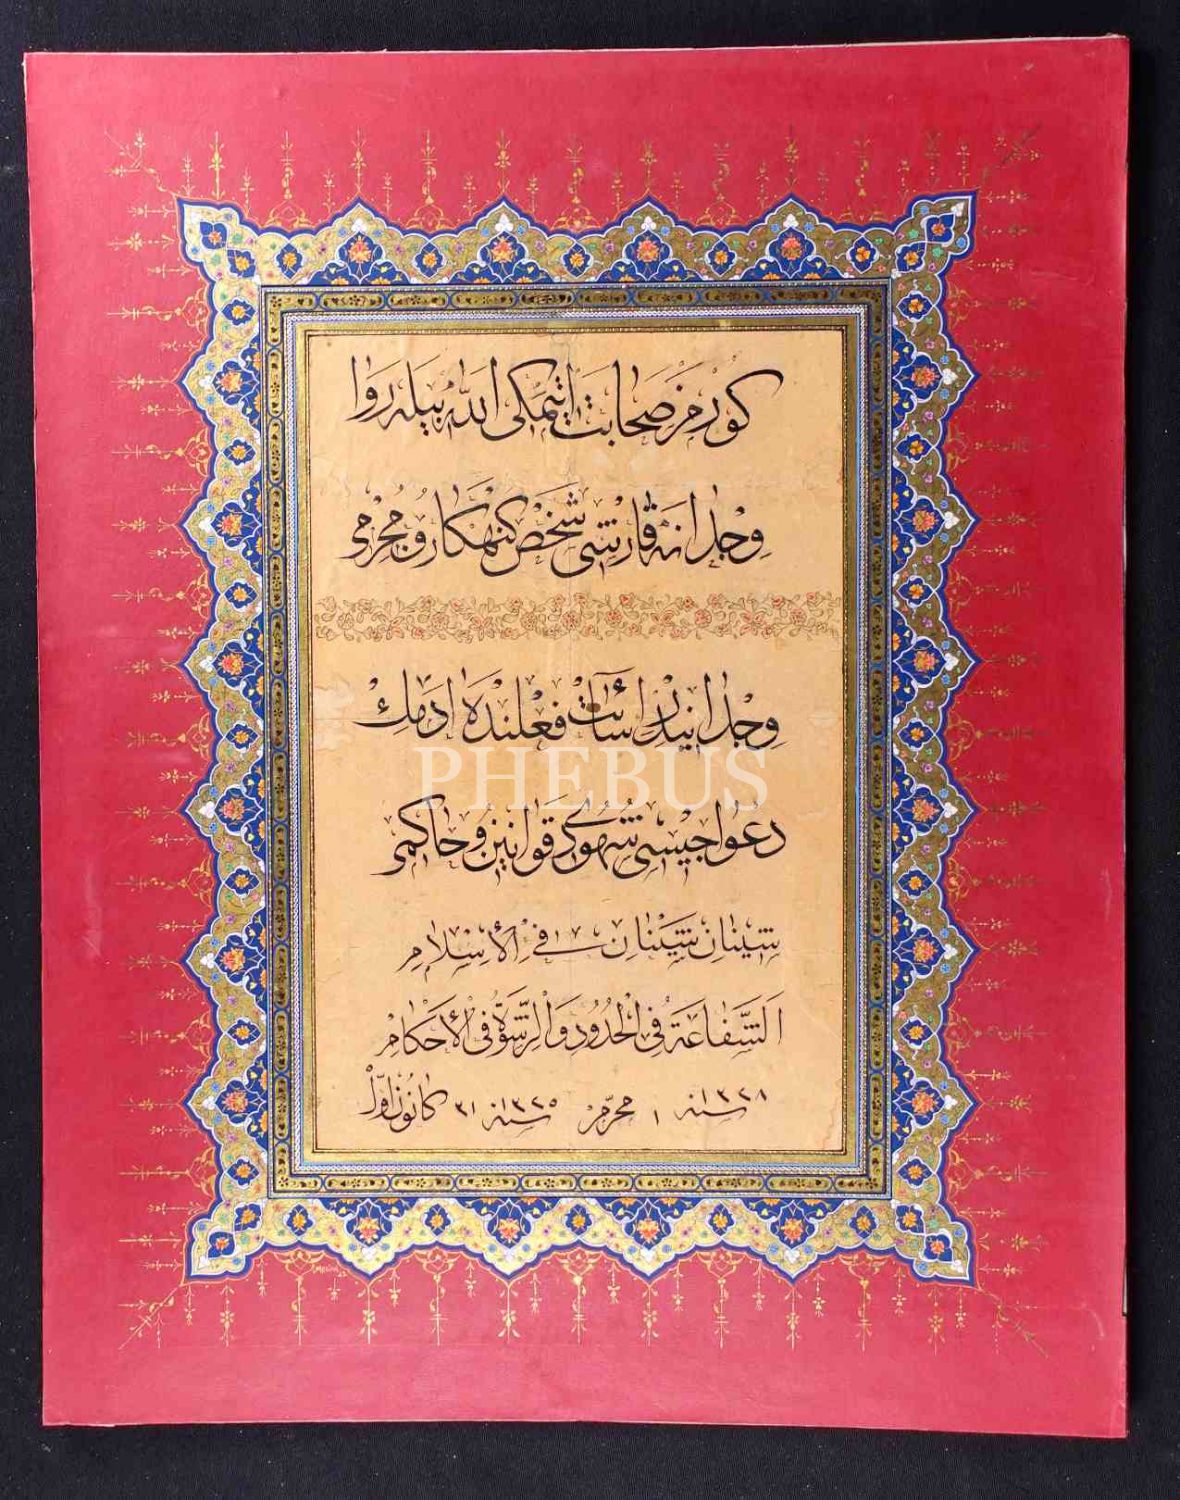 كورمز صحابت ايتمكى الله بيله روا
وجدانه قارشى شخص كنهكار و مجرمى
وجدانيدر اسائت فعلنده ادمك
دعواجيسى شهودى قوانين و حاكمى
شينان شينان فى الاسلام
الشفاعة فى الحدود والرشوة فى الاحكام
سنه ١٣٢٨ ١ محرم سنه ١٣٢٥ ٣١ كانون اول
PHEBUS